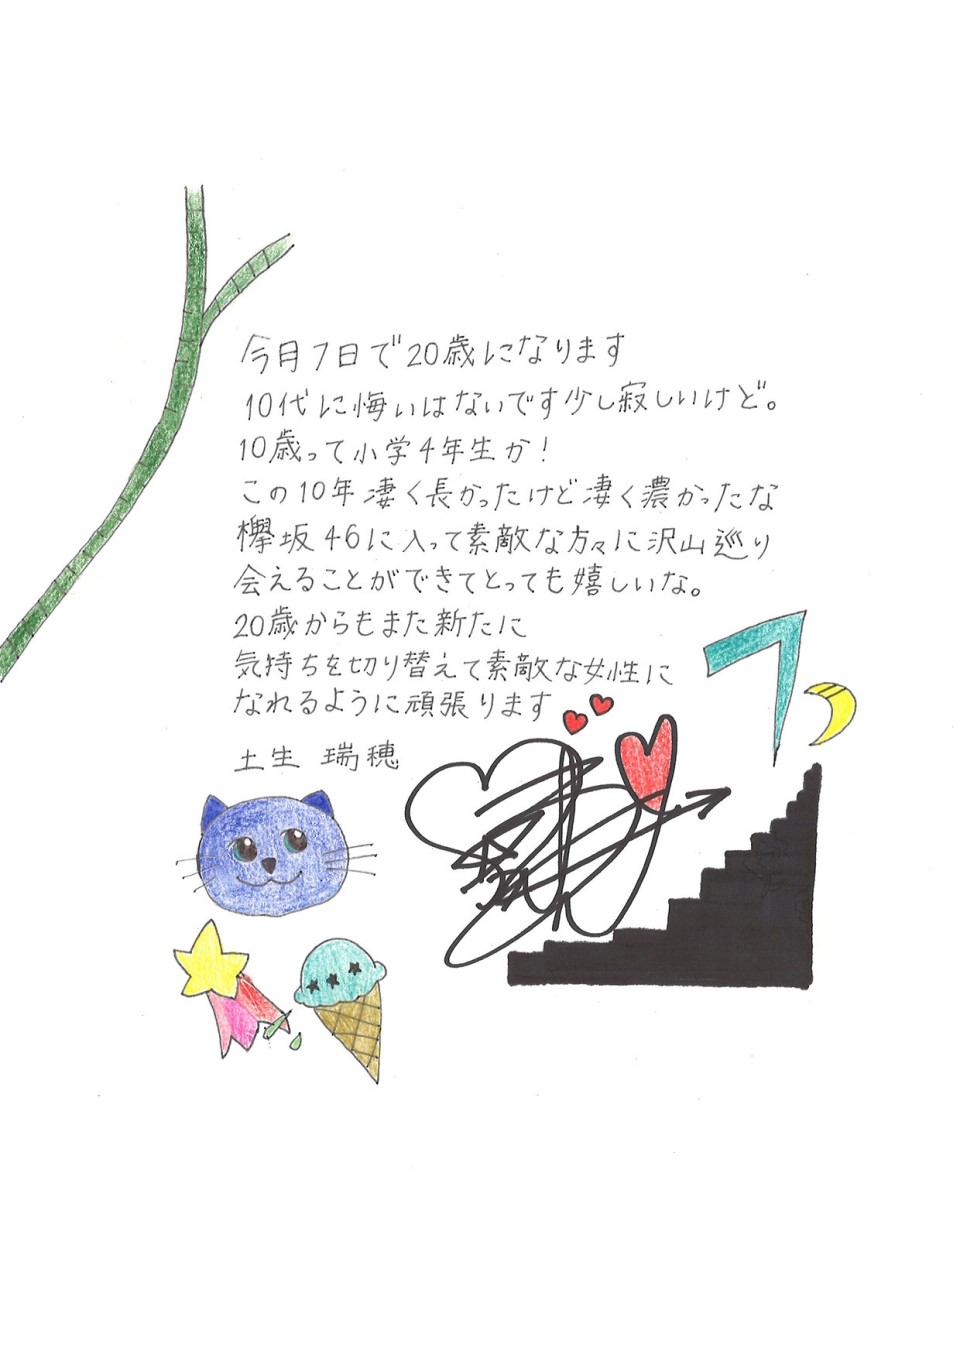 今月7日で20歳になります
10代に悔いはないです少し寂しいけど。
10歳って小学4年生か!
この10年凄く長かったけど凄く濃かったな
欅坂46に入って素敵な方々に沢山巡り
会えることができてとっても嬉しいな。
20歳からもまた新たに
気持ちを切り替えて素敵な女性に
なれるように頑張ります
土生 瑞穂